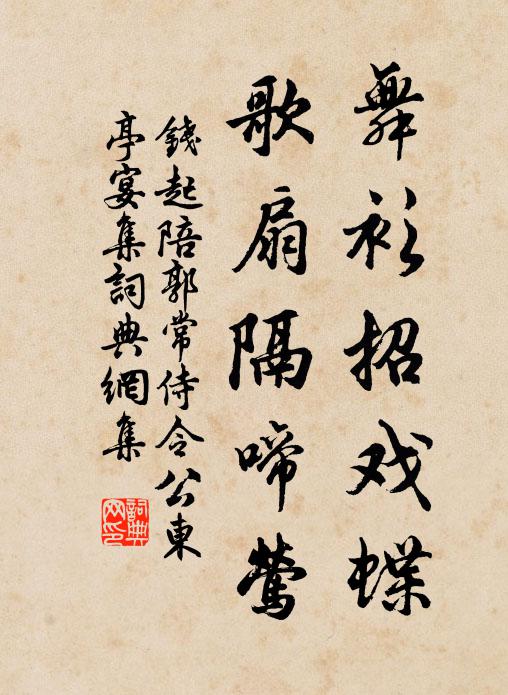 舞衫招戏蝶
歌扇隔啼莺
錢起陪郭常侍令公東
亭宴集詞典網集
詞典网印